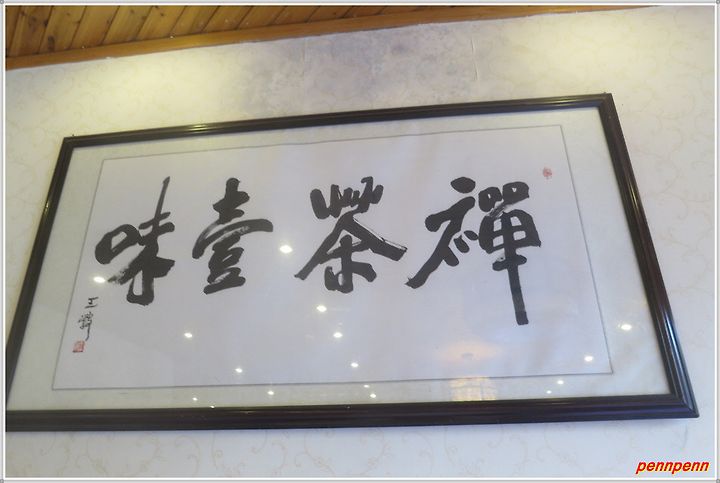 禪茶壹味
pennpenn